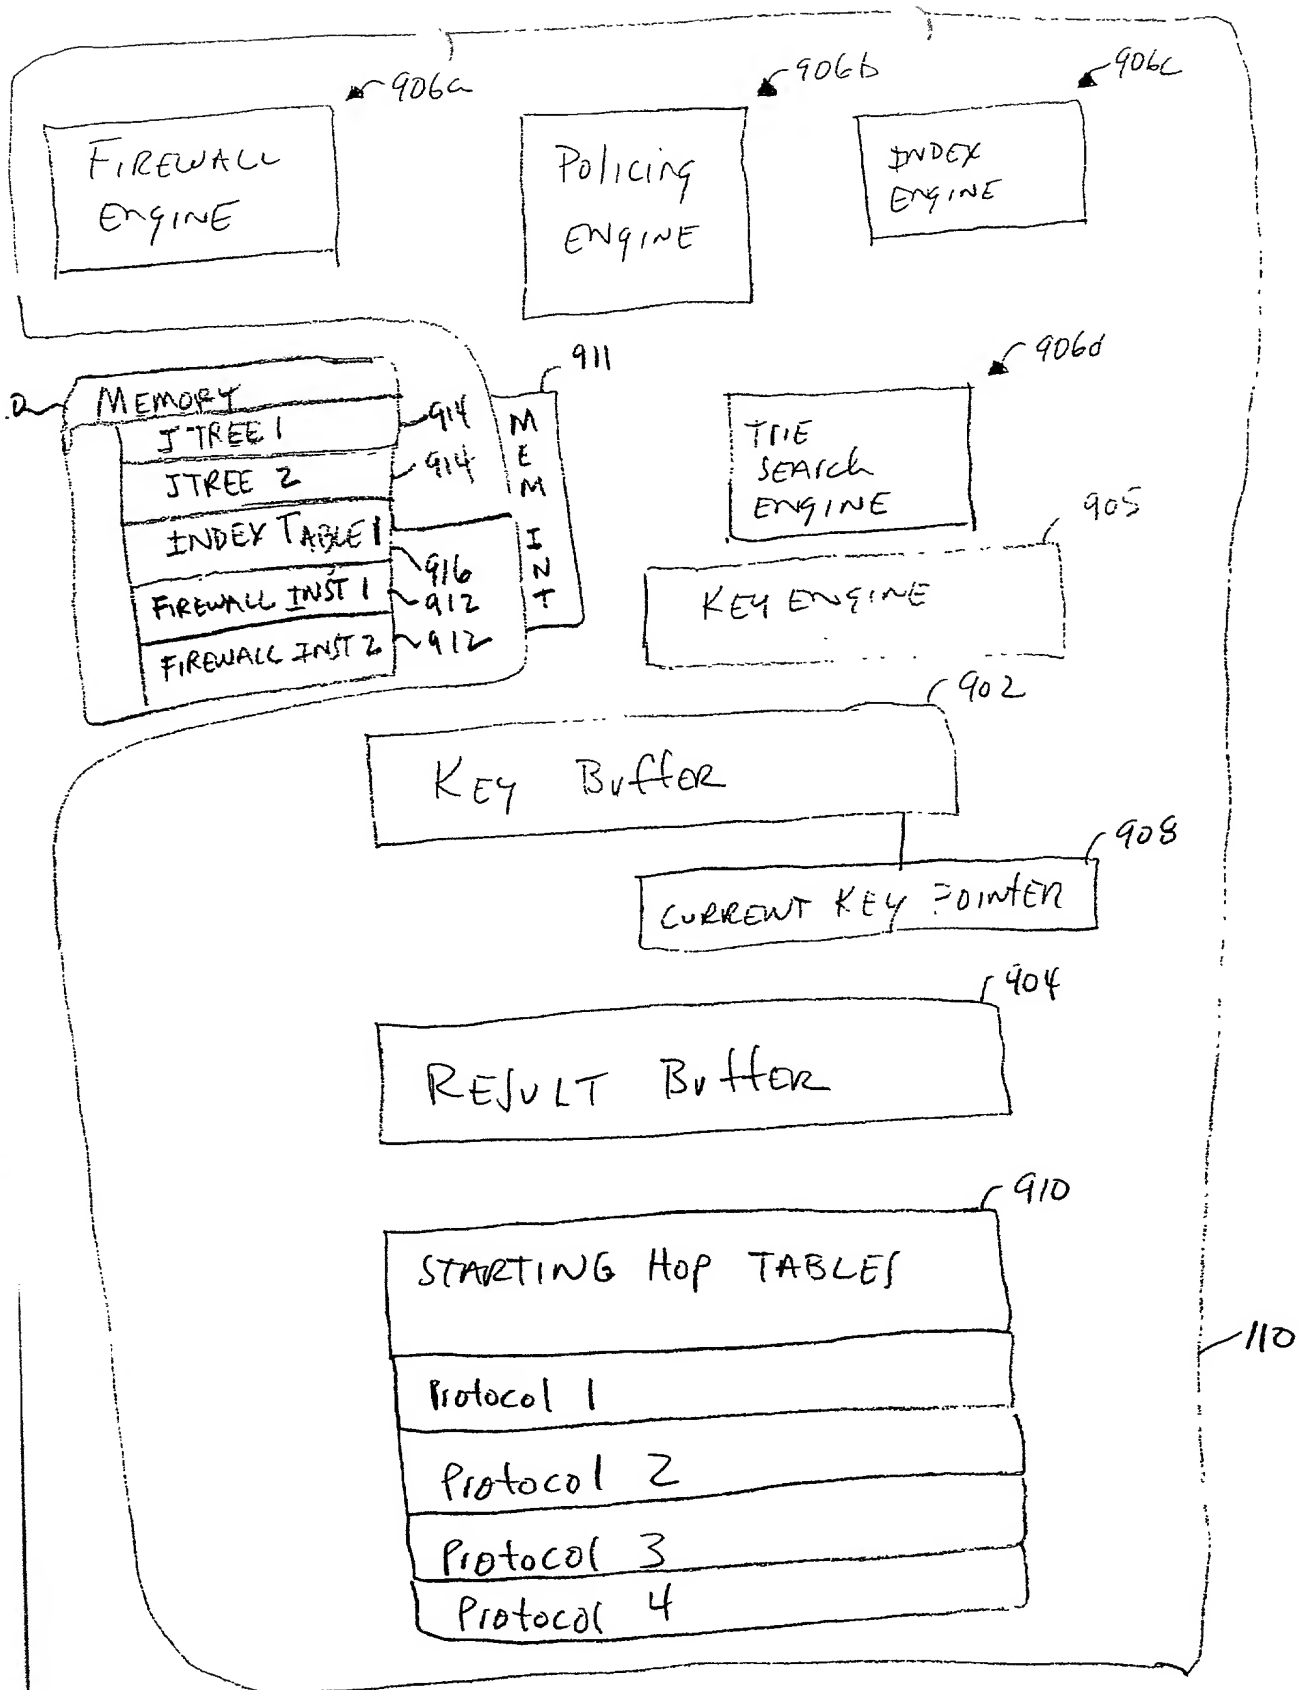 906a
906b
906c
FIREWALL
ENGINE
Policing
ENGINE
INDEX
ENGINE
911
906d
MEMORY
JTREE 1
914
JTREE 2
914
INDEX TABLE 1
916
FIREWALL INST 1
912
FIREWALL INST 2
912
MEM
INT
SEARCH
ENGINE
905
KEY ENGINE
902
KEY Buffer
908
CURRENT KEY POINTER
904
RESULT Buffer
910
STARTING HOP TABLES
110
Protocol 1
Protocol 2
Protocol 3
Protocol 4